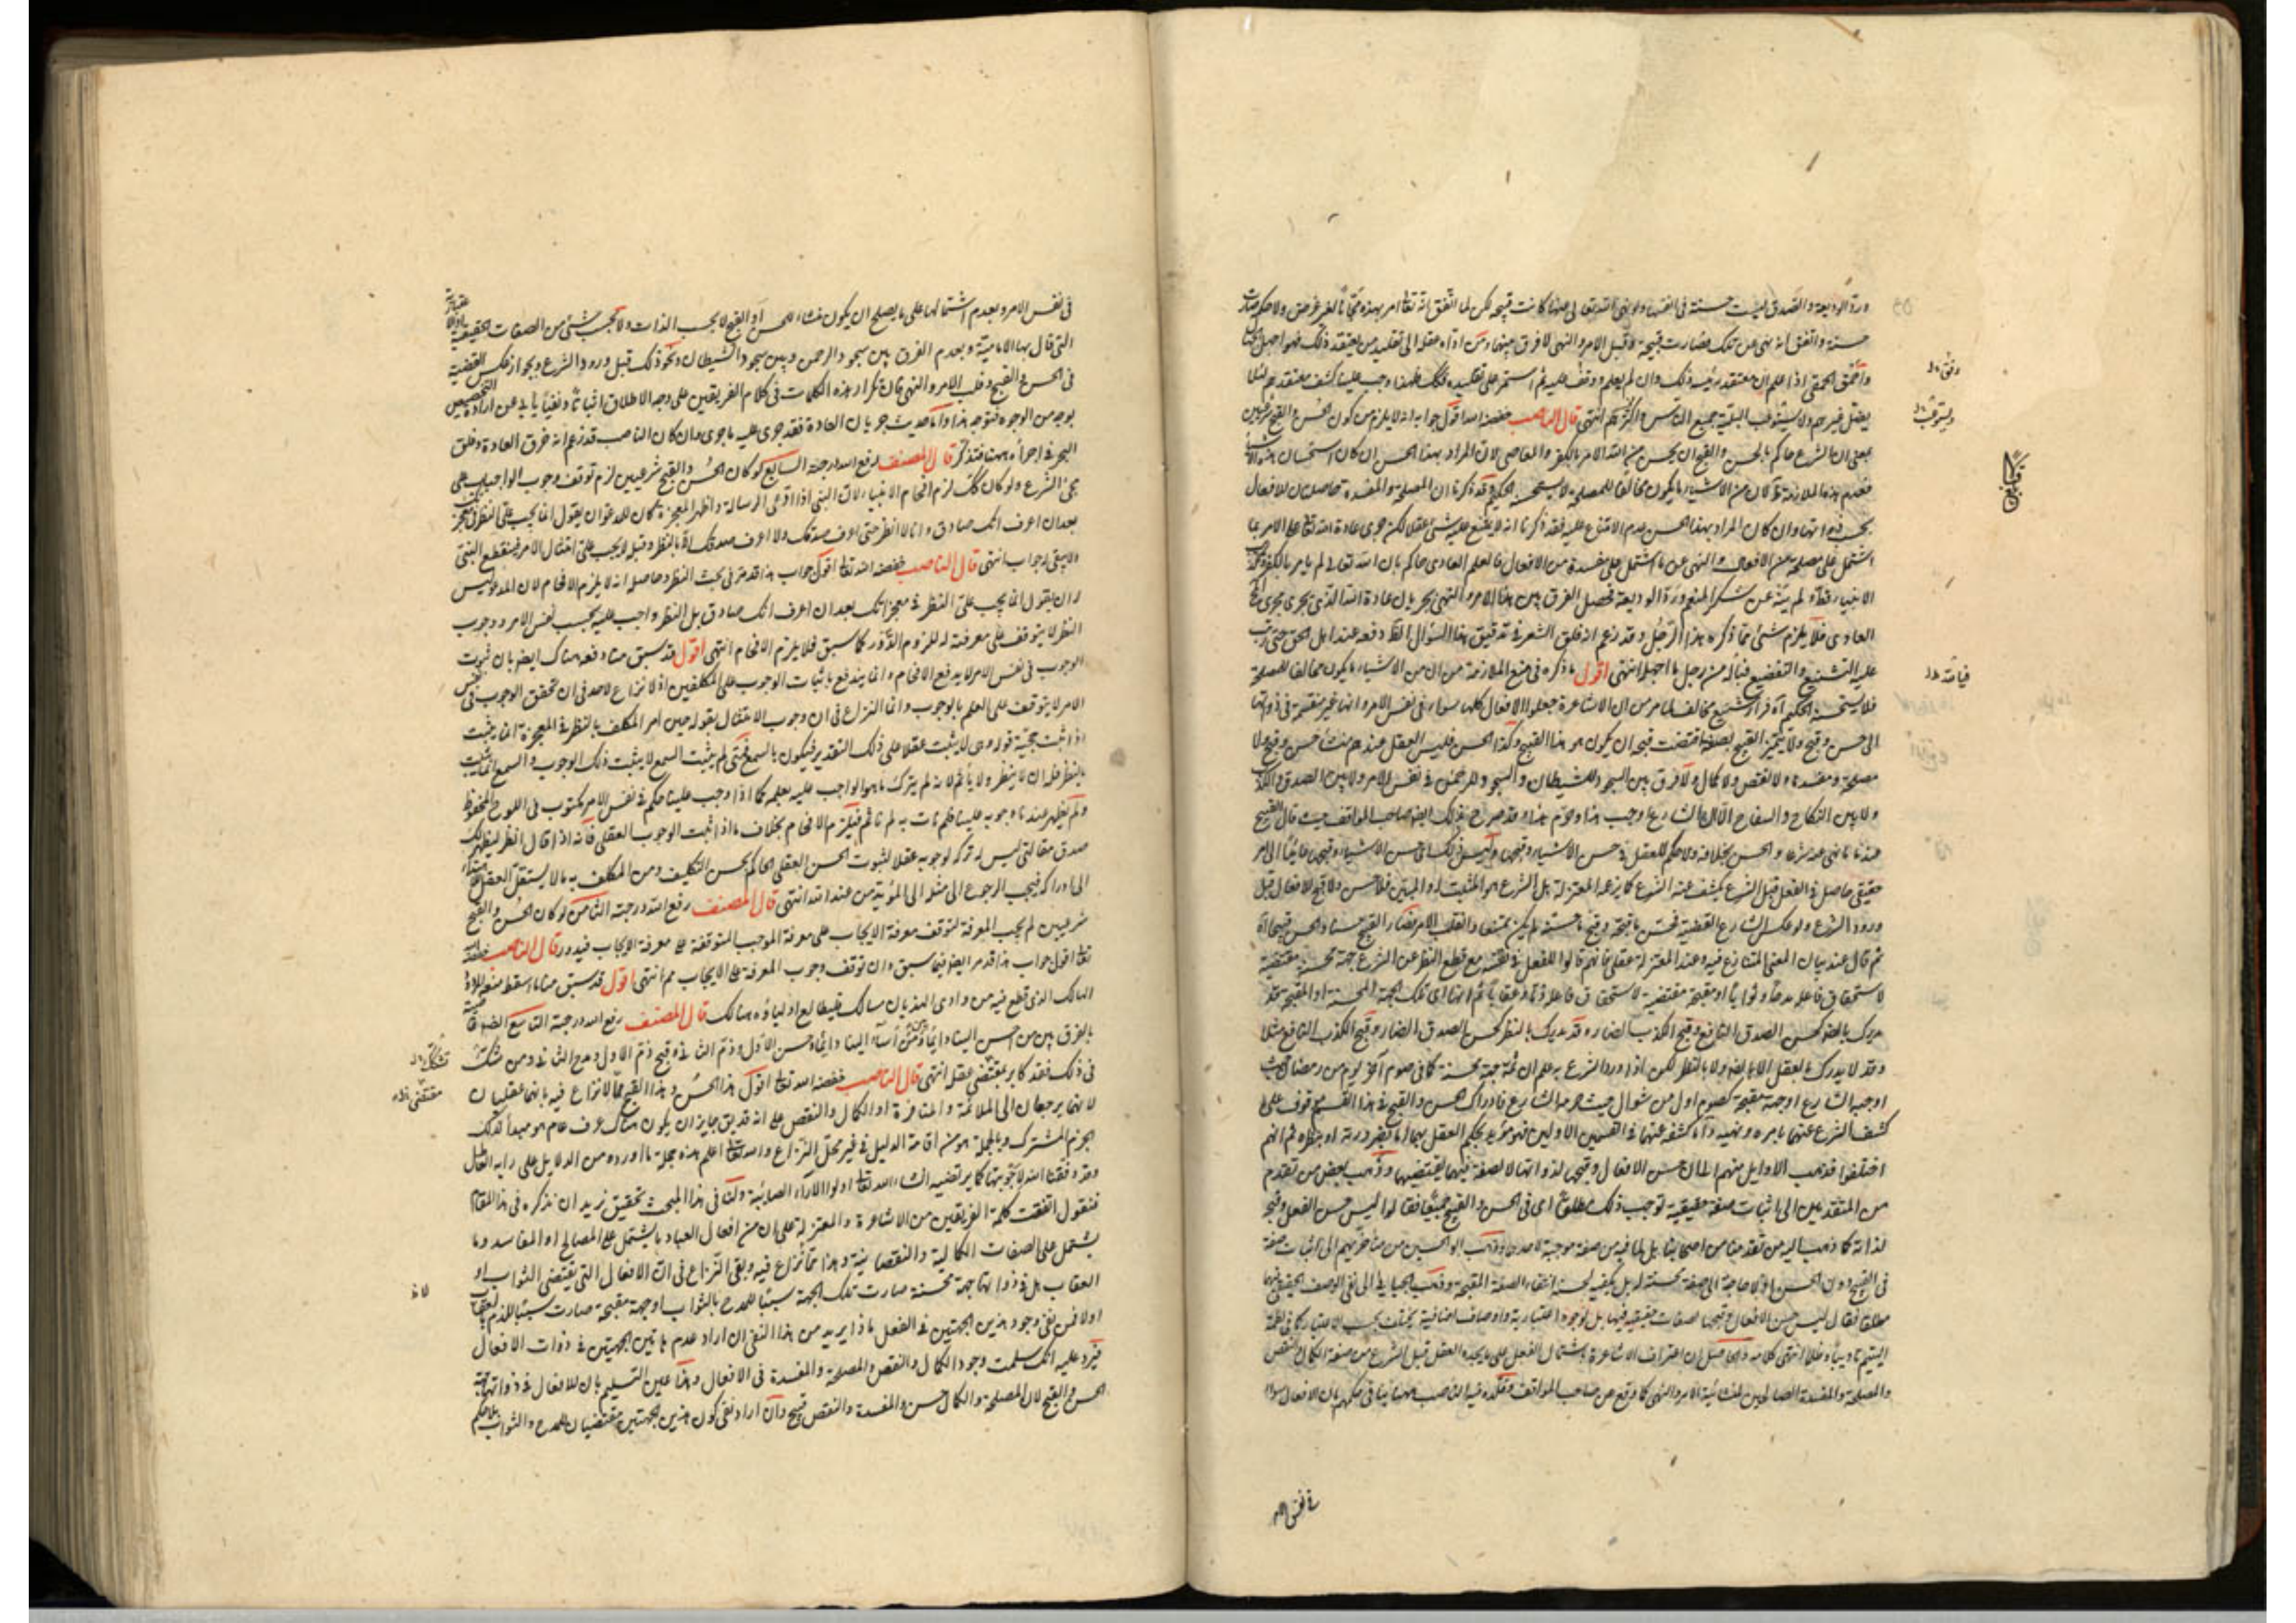 ورد الوديعة والصدق ليست حسنة فى انفسها ولا نهى الله تعالى عنها كانت قبيحة لكن لما اتفق انه تعالى امر بهذه مجانا لغير غرض ولا حكم صارت
حسنة واتفق انه نهى عن تلك فصارت قبيحة وقبل الامر والنهى لا فرق بينهما ومن اداه عقله الى تقليد من يعتقد ذلك فهو اجهل الجهال
واحمق الحمقى اذا علم ان معتقد رئيسه ذلك وان لم يعلم ووقف عليه ثم استمر على تقليده فكذلك فلهذا وجب علينا كشف معتقدهم لئلا
يضل غيرهم ولا يستوعب البلية جميع الناس او اكثرهم انتهى قال الناصب خفضه الله اقول جوابه انه لا يلزم من كون الحسن والقبح شرعيين
بمعنى ان الشرع حاكم بالحسن والقبح ان يحسن من الله الامر بالكفر والمعاصى لان المراد بهذا الحسن ان كان استحسان هذه الاشياء
فعدم هذه الملازمة ظ لان من الاشياء ما يكون مخالفا للمصلحة لا يستحسنه الحكيم وقد ذكرنا ان المصلحة والمفسدة حاصلان للافعال
بحسب ذواتها وان كان المراد بهذا الحسن عدم الامتناع عليه فقد ذكرنا انه لا يمتنع عليه شئ عقلا لكن جرى عادة الله تعالى على الامر بما
اشتمل على مصلحة من الافعال والنهى عن ما اشتمل على مفسدة من الافعال فالعلم العادى حاكم بان الله تعالى لم يامر بالكفر وتكذيب
الانبياء قط ولم ينه عن شكر المنعم ورد الوديعة فحصل الفرق بين هذا الامر والنهى بجريان عادة الله الذى يجرى مجرى المحال
العادى فلا يلزم شئ مما ذكره هذا الرجل وقد زعم انه فلق الشعر فى تدقيق هذا السؤال الظ دفعه عند اهل الحق حتى رتب
عليه التشنيع والتفضيع فيا له من رجل ما اجهله انتهى اقول ما ذكره فى منع الملازمة من ان من الاشياء ما يكون مخالفا للمصلحة
فلا يستحسنه الحكيم اه فرار شنيع مخالف لما مر من ان الاشاعرة جعلوا الافعال كلها سواء فى نفس الامر وانها غير منقسمة فى ذواتها
الى حسن وقبح ولا يتميز القبيح بصفة اقتضت قبحه ان يكون هو هذا القبيح وكذا الحسن فليس للعقل عندهم منشأ حسن وقبح ولا
مصلحة ومفسدة ولا نقص ولا كمال ولا فرق بين السجود للشيطان والسجود للرحمن فى نفس الامر ولا بين الصدق والكذب
ولا بين النكاح والسفاح الا ان الشارع اوجب هذا وحرم هذا وقد صرح بذلك ايضا صاحب المواقف حيث قال القبيح
عندنا ما نهى عنه شرعا والحسن بخلافه ولا حكم للعقل فى حسن الاشياء وقبحها وليس ذلك اى حسن الاشياء وقبحها عائدا الى امر
حقيقى حاصل فى الفعل قبل الشرع يكشف عنه الشرع كما يزعمه المعتزلة بل الشرع هو المثبت له والمبين فلا حسن ولا قبح للافعال قبل
ورود الشرع ولو عكس الشارع القضية فحسن ما قبحه وقبح ما حسنه لم يكن ممتنعا وانقلب الامر فصار القبيح حسنا والحسن قبيحا اه
ثم قال عند بيان المعنى المتنازع فيه وعند المعتزلة عقلى فانهم قالوا للفعل فى نفسه مع قطع النظر عن الشرع جهة محسنة مقتضية
لاستحقاق فاعله مدحا وثوابا او مقبحة مقتضية لاستحقاق فاعله ذما وعقابا ثم انها اى تلك الجهة المحسنة او المقبحة قد
يدرك بالضرورة كحسن الصدق النافع وقبح الكذب الضار وقد يدرك بالنظر كحسن الصدق الضار وقبح الكذب النافع مثلا
وقد لا يدرك بالعقل لا بالضرورة ولا بالنظر لكن اذا ورد الشرع به علم ان ثمة جهة محسنة كما فى صوم آخر يوم من رمضان حيث
اوجبه الشارع او جهة مقبحة كصوم اول من شوال حيث حرمه الشارع فادراك الحسن والقبح فى هذا القسم موقوف على
كشف الشرع عنهما بامره ونهيه واما كشفه عنهما فى القسمين الاولين فهو مؤيد لحكم العقل بهما اما بضرورته او بنظره ثم انهم
اختلفوا فذهب الاوايل منهم الى ان حسن الافعال وقبحها لذواتها لا لصفة فيها يقتضيهما وذهب بعض من تقدم
من المتقدمين الى اثبات صفة حقيقية توجب ذلك مطلقا اى فى الحسن والقبح جميعا فقالوا ليس حسن الفعل وقبحه
لذاته كما ذهب اليه من تقدمنا من اصحابنا بل لما فيه من صفة موجبة لاحدهما وذهب ابو الحسين من متاخريهم الى اثبات صفة
فى القبيح دون الحسن اذ لا حاجة الى صفة محسنة له بل يكفيه لحسنه انتفاء الصفة المقبحة وذهب الجبايى الى نفى الوصف الحقيقى فيهما
مطلقا فقال ليس حسن الافعال وقبحها لصفات حقيقية فيها بل لوجوه اعتبارية واوصاف اضافية يختلف بحسب الاعتبار كما فى لطمة
اليتيم تاديبا وظلما انتهى كلامه والحاصل ان اعتراف الاشاعرة باشتمال الفعل على ما يجده العقل قبل الشرع من صفة الكمال والنقص
والمصلحة والمفسدة الصالحين لمنشائية الامر والنهى كما وقع عن صاحب المواقف وقلده فيه الناصب ههنا ينافى حكمهم بان الافعال سواء
فى نفس الامر
فى نفس الامر وبعدم اشتمالها على ما يصلح ان يكون منشاء للحسن او القبح لا بحسب الذات ولا بحسب شئ من الصفات الحقيقية
التى قال بها الامامية وبعدم الفرق بين سجود الرحمن وبين سجود الشيطان ونحو ذلك قبل ورود الشرع وبجواز عكس القضية
فى الحسن والقبح وقلب الامر والنهى فان تكرار هذه الكلمات فى كلام الفريقين على وجه الاطلاق اثباتا ونفيا يابى عن ارادة التخصيص
بوجه من الوجوه فتوجه هذا واما حديث جريان العادة فقد جرى عليه ما جرى وان كان الناصب قد زعم انه خرق العادة وفلق
البحر فى اجرائه ههنا فتذكر قال المصنف رفع الله درجته السابع لو كان الحسن والقبح شرعيين لزم توقف وجوب الواجبات على
مجئ الشرع ولو كان كذلك لزم افحام الانبياء لان النبى اذا ادعى الرسالة واظهر المعجزة كان للمدعو ان يقول انما يجب على النظر فى معجزتك
بعد ان اعرف انك صادق وانا لا انظر حتى اعرف صدقك ولا اعرف صدقك الا بالنظر وقبله لا يجب على امتثال الامر فينقطع النبى
ولا يبقى له جواب انتهى قال الناصب خفضه الله تعالى اقول جواب هذا قد مر فى بحث النظر وحاصله انه لا يلزم الافحام لان المدعو ليس
له ان يقول انما يجب على النظر فى معجزاتك بعد ان اعرف انك صادق بل النظر واجب عليه بحسب نفس الامر ووجوب
النظر لا يتوقف على معرفته له للزوم الدور كما سبق فلا يلزم الافحام انتهى اقول قد سبق منا دفعه هناك ايضا بان ثبوت
الوجوب فى نفس الامر لا يدفع الافحام وانما يندفع باثبات الوجوب على المكلفين اذ لا نزاع لاحد فى ان تحقق الوجوب فى نفس
الامر لا يتوقف على العلم بالوجوب وانما النزاع فى ان وجوب الامتثال بقوله حين امر المكلف بالنظر فى المعجزة انما يثبت
اذا ثبت حجية قوله وهى لا يثبت عقلا على ذلك التقدير فيكون بالسمع فمتى لم يثبت السمع لا يثبت ذلك الوجوب والسمع انما يثبت
بالنظر فله ان لا ينظر ولا يأثم لانه لم يترك ما هو الواجب عليه بعلمه كما اذا وجب علينا حكم فى نفس الامر مكتوب فى اللوح المحفوظ
ولم يظهر عندنا وجوبه علينا فلم نات به لم ناثم فيلزم الافحام بخلاف ما اذا ثبت الوجوب العقلى فانه اذا قال انظر ليظهر لك
صدق مقالتى ليس له تركه لوجوبه عقلا لثبوت الحسن العقلى الحاكم بحسن التكليف ومن المكلف به ما لا يستقل العقل
الى ادراكه فيجب الرجوع الى مثله الى المؤيد من عند الله انتهى قال المصنف رفع الله درجته الثامن لو كان الحسن والقبح
شرعيين لم يجب المعرفة لتوقف معرفة الايجاب على معرفة الموجب المتوقفة على معرفة الايجاب فيدور قال الناصب خفضه الله
تعالى اقول جواب هذا قد مر ايضا فيما سبق وان توقف وجوب المعرفة على الايجاب مم انتهى اقول قد سبق منا ما اسقط منعه
الهالك الذى قطع فيه من وادى الهذيان مسالك فليطالع اولياؤه هنالك قال المصنف رفع الله درجته التاسع الضرورة قاضية
بالفرق بين من احسن الينا دائما ومن اساء الينا دائما وحسن الاول وذم الثانى وقبح ذم الاول ومدح الثانى ومن شك
فى ذلك فقد كابر مقتضى عقله انتهى قال الناصب خفضه الله تعالى اقول هذا الحسن وهذا القبح مما لا نزاع فيه بانهما عقليان
لانهما يرجعان الى الملائمة والمنافرة او الكمال والنقص على انه قد يق جايز ان يكون هناك عرف عام هو مبدأ لذلك
الجزم المشترك وبالجملة هو من اقامة الدليل فى غير محل النزاع والله تعالى اعلم هذه جملة ما اورده من الدلايل على رايه العاطل
وقد وفقنا الله لاجوبتها كما يرتضيه انشاء الله تعالى اولوا الاراء الصائبة ولنا فى هذا المبحث تحقيق نريد ان نذكره فى هذا المقام
فنقول اتفقت كلمة الفريقين من الاشاعرة والمعتزلة على ان من افعال العباد ما يشتمل على المصالح او المفاسد وما
يشتمل على الصفات الكمالية والنقصانية وهذا مما لا نزاع فيه وبقى النزاع فى ان الافعال التى يقتضى الثواب او
العقاب هل فى ذواتها جهة محسنة صارت تلك الجهة سببا للمدح بالثواب او جهة مقبحة صارت سببا للذم بالعقاب
او لا فمن نفى وجود هذين الجهتين فى الفعل ماذا يريد من هذا النفى ان اراد عدم هاتين الجهتين فى ذوات الافعال
فيرد عليه انك سلمت وجود الكمال والنقص والمصلحة والمفسدة فى الافعال وهذا عين التسليم بان للافعال فى ذواتها جهة
الحسن والقبح لان المصلحة والكمال حسن والمفسدة والنقص قبيح وان اراد نفى كون هذين الجهتين مقتضيان للمدح والثواب بلا حكم